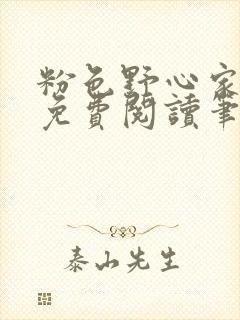 粉色野心家
免費閱讀筆
泰山先生